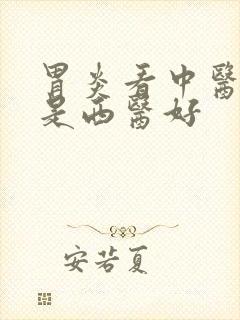 胃炎看中醫
是西醫好
安若夏